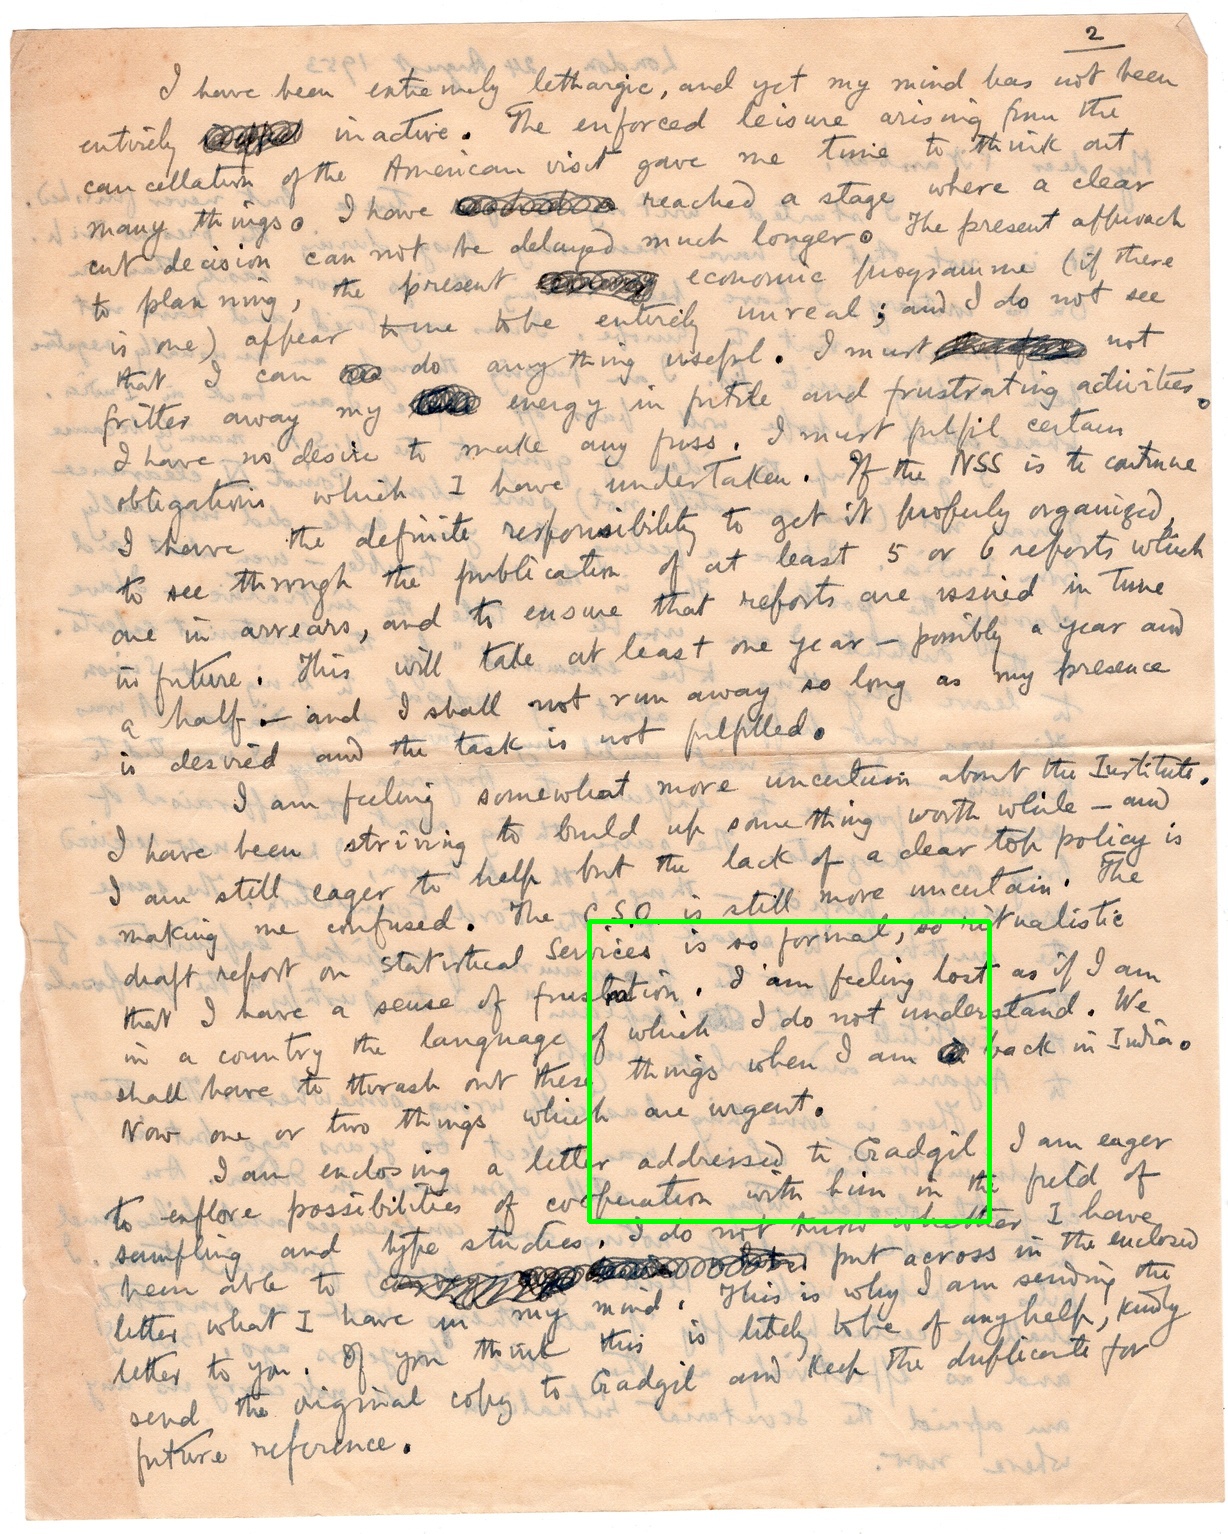 2
I have been extremely lethargic, and yet my mind has not been
entirely inactive. The enforced leisure arising from the
cancellation of the American visit gave me time to think out
many things. I have reached a stage where a clear
cut decision can not be delayed much longer. The present approach
to planning, the present economic programme (if there
is one) appear to me to be entirely unreal; and I do not see
that I can do anything useful. I must not
fritter away my energy in futile and frustrating activities.
I have no desire to make any fuss. I must fulfil certain
obligations which I have undertaken. If the NSS is to continue
I have the definite responsibility to get it properly organized,
to see through the publication of at least 5 or 6 reports which
are in arrears, and to ensure that reports are issued in time
in future. This will take at least one year – possibly a year and
a half – and I shall not run away so long as my presence
is desired and the task is not fulfilled.
I am feeling somewhat more uncertain about the Institute.
I have been striving to build up something worth while – and
I am still eager to help but the lack of a clear top policy is
making me confused. The C.S.O. is still more uncertain. The
draft report on Statistical Services is so formal, so ritualistic
that I have a sense of frustration. I am feeling lost as if I am
in a country the language of which I do not understand. We
shall have to thrash out these things when I am back in India.
Now one or two things which are urgent.
I am enclosing a letter addressed to Gadgil I am eager
to explore possibilities of cooperation with him in the field of
sampling and type studies. I do not know whether I have
been able to put across in the enclosed
letter what I have in my mind. This is why I am sending the
letter to you. If you think this is likely to be of any help, kindly
send the original copy to Gadgil and keep the duplicate for
future reference.